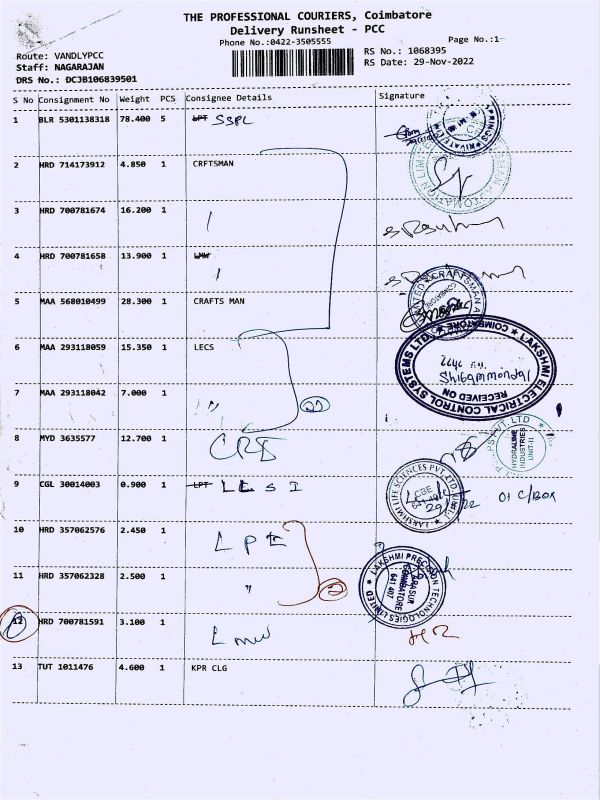 THE PROFESSIONAL COURIERS, Coimbatore
Delivery Runsheet - PCC
Phone No.:0422-3505555
Page No.:1-
Route: VANDLYPCC
RS No.: 1068395
Staff: NAGARAJAN
RS Date: 29-Nov-2022
DRS No.: DCJB106839501
S No Consignment No Weight PCS Consignee Details Signature
1 BLR 5301138318 78.400 5 LPT SSPL
2 HRD 714173912 4.850 1 CRFTSMAN
3 HRD 700781674 16.200 1
4 HRD 700781658 13.900 1
5 MAA 568010499 28.300 1 CRAFTS MAN
COIMBATORE
6 MAA 293118059 15.350 1 LECS
LAKSHMI ELECTRICAL CONTROL SYSTEMS LTD. ★ COIMBATORE ★
RECEIVED ON
Shibammondal
7 MAA 293118042 7.000 1 "
8 MYD 3635577 12.700 1
HYDRALINE
INDUSTRIES
UNIT-II
9 CGL 30014003 0.900 1 LPT LLSI
LAKSHMI LIFE SCIENCES PVT. LTD.
CBE
01 C/BOX
10 HRD 357062576 2.450 1 LPT
11 HRD 357062328 2.500 1 "
LAKSHMI PRECISION TECHNOLOGIES LIMITED
ARASUR
COIMBATORE
641 407
12 HRD 700781591 3.100 1 Lmw
13 TUT 1011476 4.600 1 KPR CLG